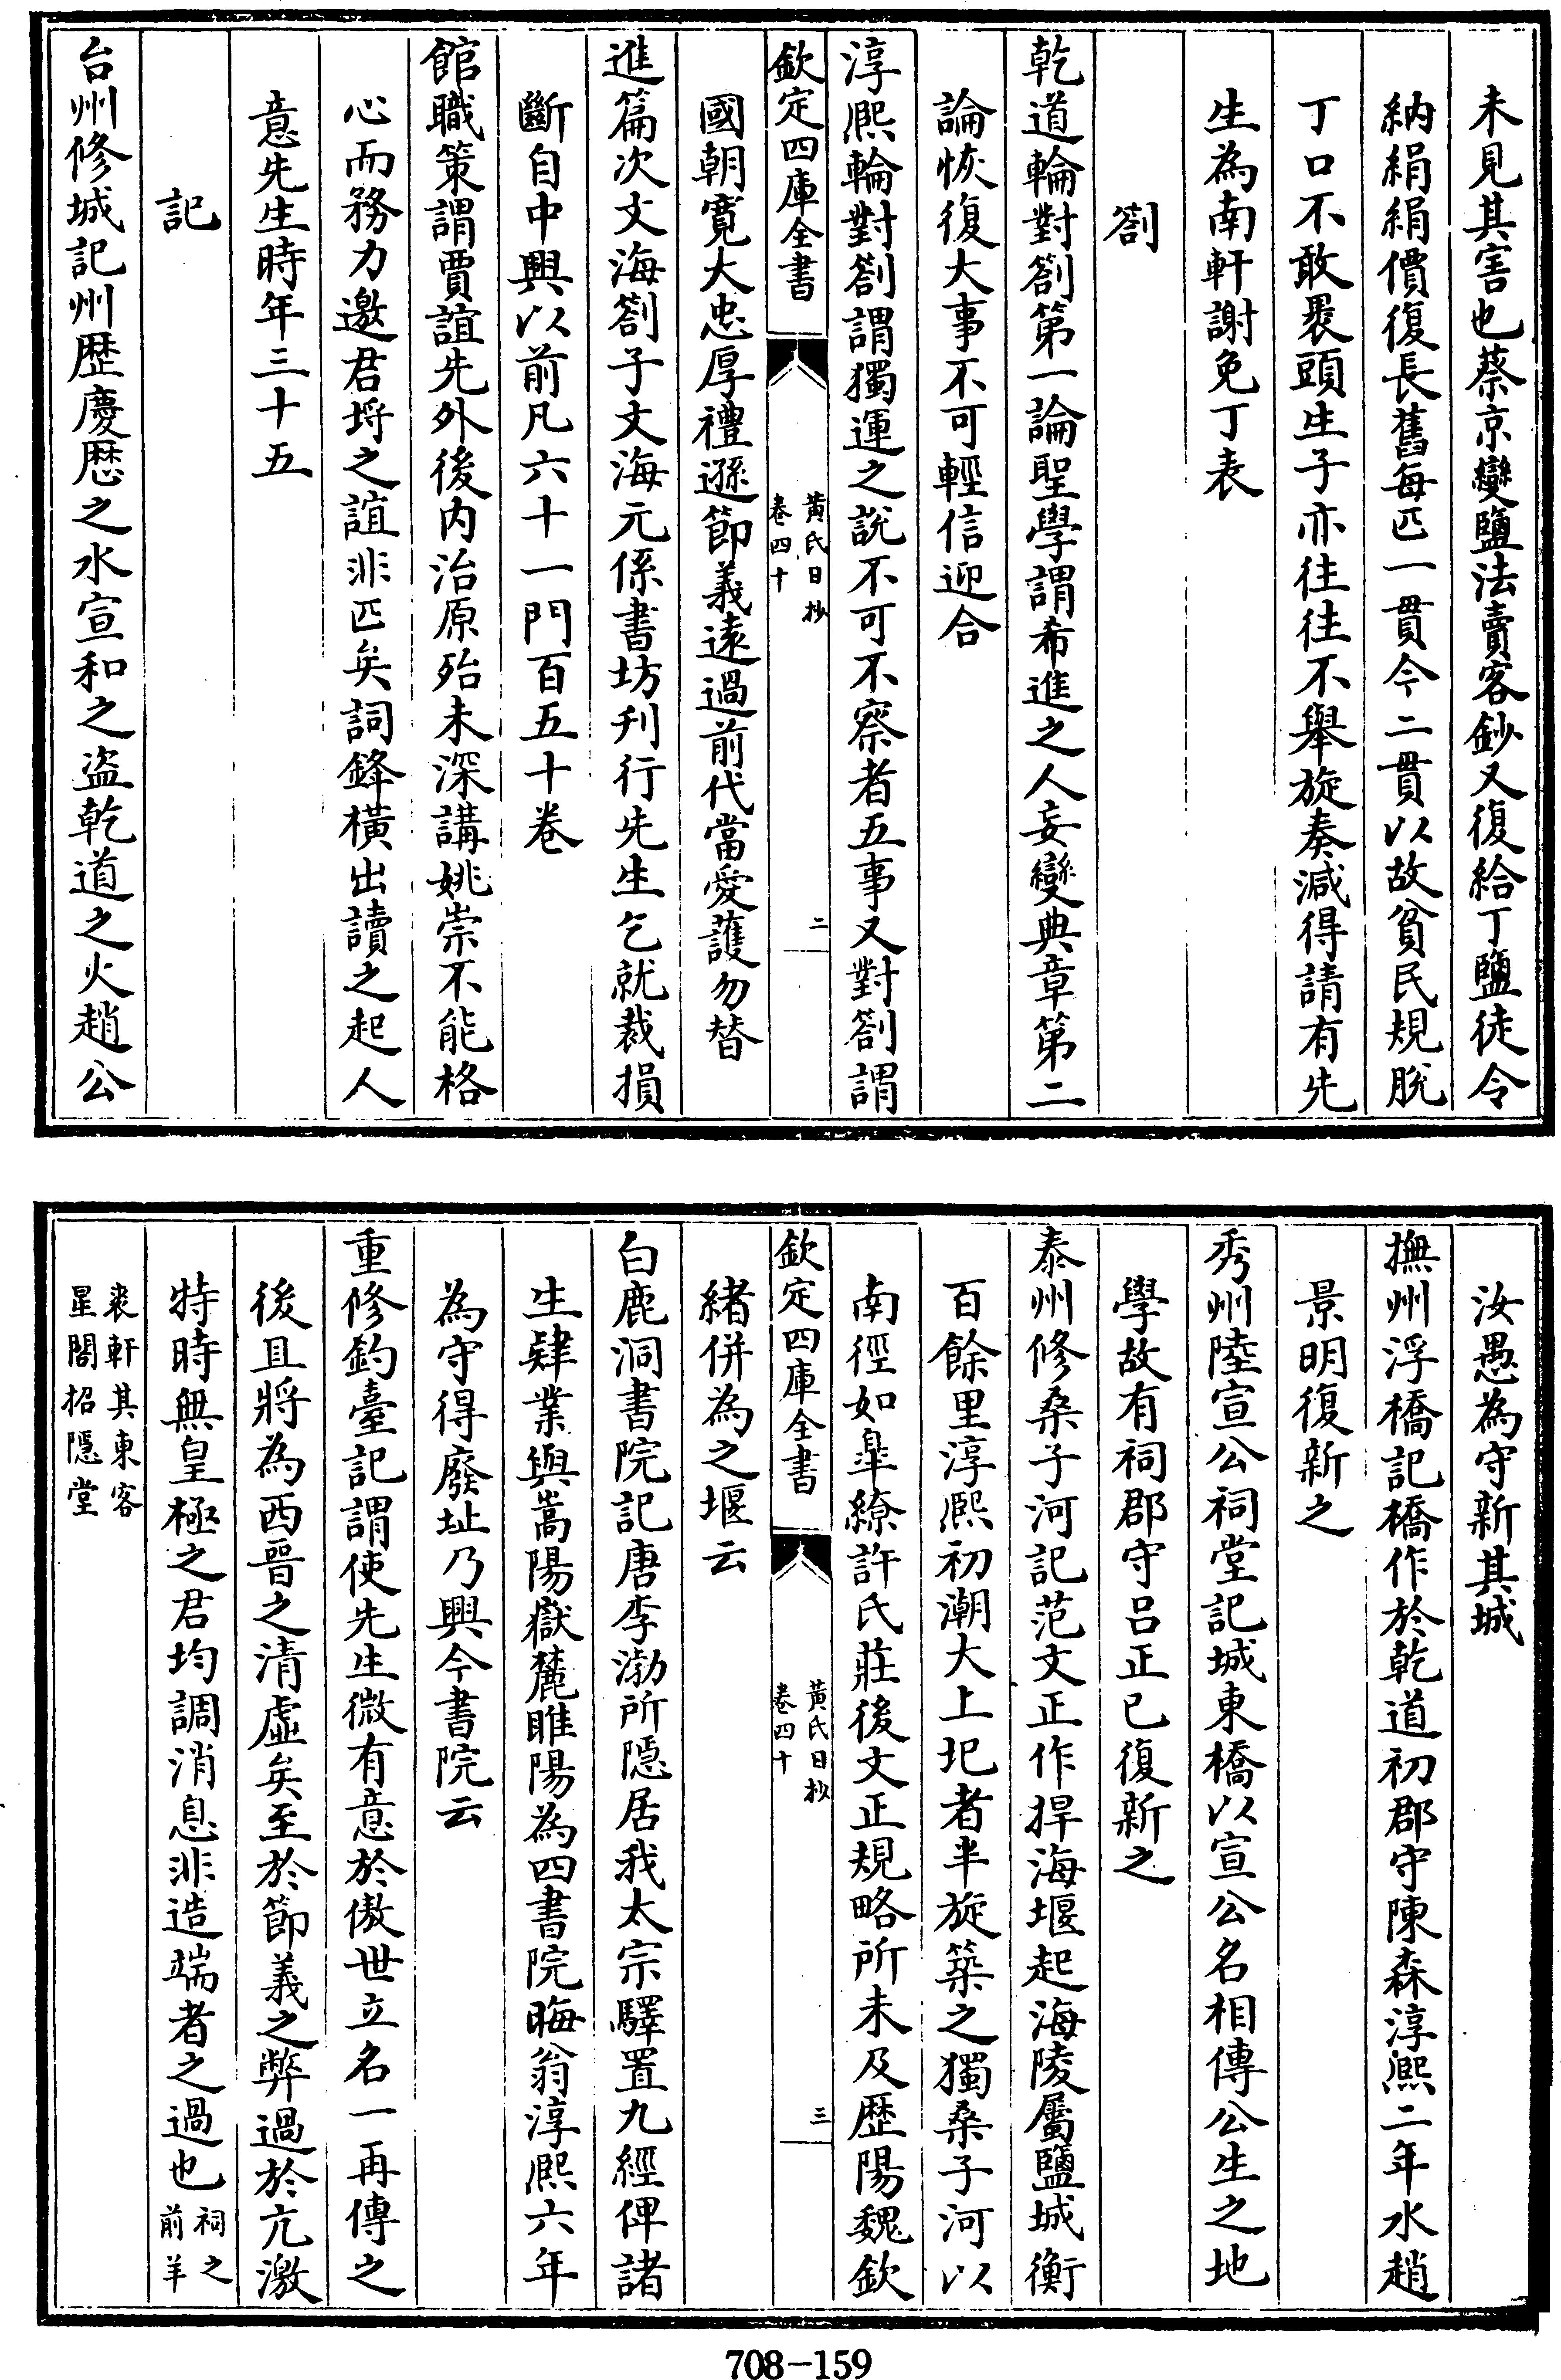 未見其害也蔡京變鹽法賣客鈔又復給丁鹽徒令
納絹絹價復長舊每匹一貫今二貫以故貧民規脫
丁口不敢褁頭生子亦往往不舉旋奏減得請有先
生為南軒謝免丁表
劄
乾道輪對劄第一論聖學謂希進之人妄變典章第二
論恢復大事不可輕信迎合
淳熈輪對劄謂獨運之說不可不察者五事又對劄謂
欽定四庫全書
黃氏日抄
卷四十
二
國朝寛大忠厚禮遜節義遠過前代當愛護勿替
進篇次文海劄子文海元係書坊刋行先生乞就裁損
斷自中興以前凡六十一門百五十卷
館職策謂賈誼先外後内治原殆未深講姚崇不能格
心而務力邀君埒之誼非匹矣詞鋒横出讀之起人
意先生時年三十五
記
台州修城記州歴慶厯之水宣和之盗乾道之火趙公
汝愚為守新其城
撫州浮橋記橋作於乾道初郡守陳森淳熈二年水趙
景明復新之
秀州陸宣公祠堂記城東橋以宣公名相傳公生之地
學故有祠郡守吕正已復新之
泰州修桑子河記范文正作捍海堰起海陵屬鹽城衡
百餘里淳熈初潮大上圯者半旋築之獨桑子河以
南徑如臯繚許氏莊後文正規略所未及歴陽魏欽
欽定四庫全書
黃氏日抄
卷四十
三
緒併為之堰云
白鹿洞書院記唐李渤所隱居我太宗驛置九經俾諸
生肄業與嵩陽嶽麓睢陽為四書院晦翁淳熈六年
為守得廢址乃興今書院云
重修釣臺記謂使先生微有意於傲世立名一再傳之
後且將為西晉之清虛矣至於節義之弊過於亢激
特時無皇極之君均調消息非造端者之過也祠之
前羊
裘軒其東客
星閣招隱堂
708-159